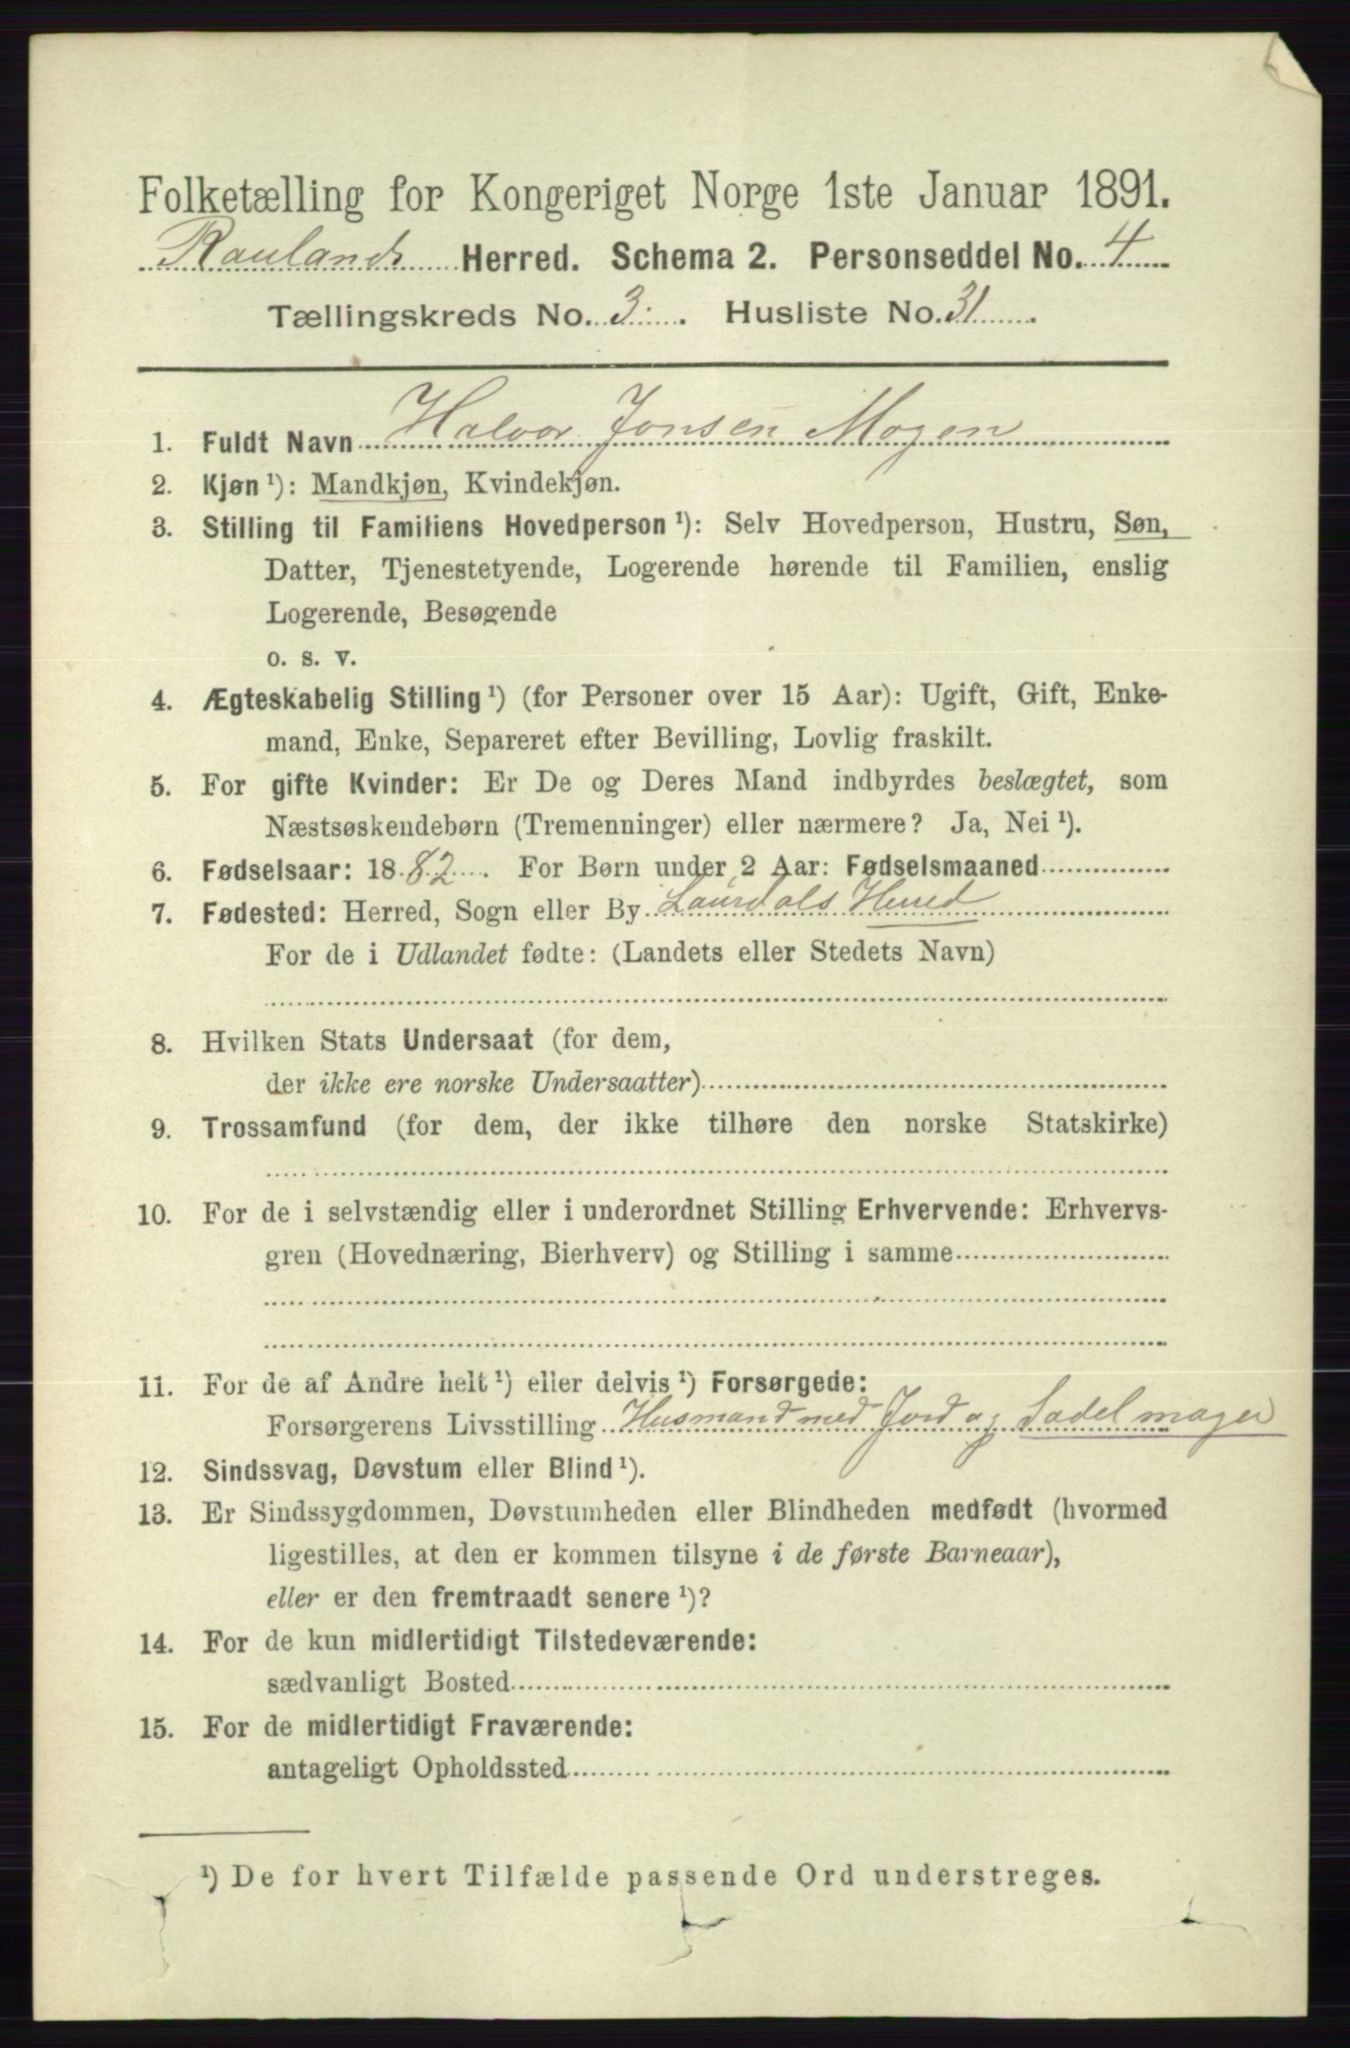 Folketælling for Kongeriget Norge 1ste Januar 1891.
Raulands Herred. Schema 2. Personseddel No. 4
Tællingskreds No. 3. Husliste No. 31
1. Fuldt Navn Halvor Jonsen Mogen
2. Kjøn ¹): Mandkjøn, Kvindekjøn.
3. Stilling til Familiens Hovedperson ¹): Selv Hovedperson, Hustru, Søn,
Datter, Tjenestetyende, Logerende hørende til Familien, enslig
Logerende, Besøgende
o. s. v.
4. Ægteskabelig Stilling ¹) (for Personer over 15 Aar): Ugift, Gift, Enke-
mand, Enke, Separeret efter Bevilling, Lovlig fraskilt.
5. For gifte Kvinder: Er De og Deres Mand indbyrdes beslægtet, som
Næstsøskendebørn (Tremenninger) eller nærmere? Ja, Nei ¹).
6. Fødselsaar: 1882. For Børn under 2 Aar: Fødselsmaaned
7. Fødested: Herred, Sogn eller By Laurdals Herred
For de i Udlandet fødte: (Landets eller Stedets Navn)
8. Hvilken Stats Undersaat (for dem,
der ikke ere norske Undersaatter)
9. Trossamfund (for dem, der ikke tilhøre den norske Statskirke)
10. For de i selvstændig eller i underordnet Stilling Erhvervende: Erhvervs-
gren (Hovednæring, Bierhverv) og Stilling i samme
11. For de af Andre helt ¹) eller delvis ¹) Forsørgede:
Forsørgerens Livsstilling Husmand med Jord og Sadelmager
12. Sindssvag, Døvstum eller Blind ¹).
13. Er Sindssygdommen, Døvstumheden eller Blindheden medfødt (hvormed
ligestilles, at den er kommen tilsyne i de første Barneaar),
eller er den fremtraadt senere ¹)?
14. For de kun midlertidigt Tilstedeværende:
sædvanligt Bosted
15. For de midlertidigt Fraværende:
antageligt Opholdssted
¹) De for hvert Tilfælde passende Ord understreges.